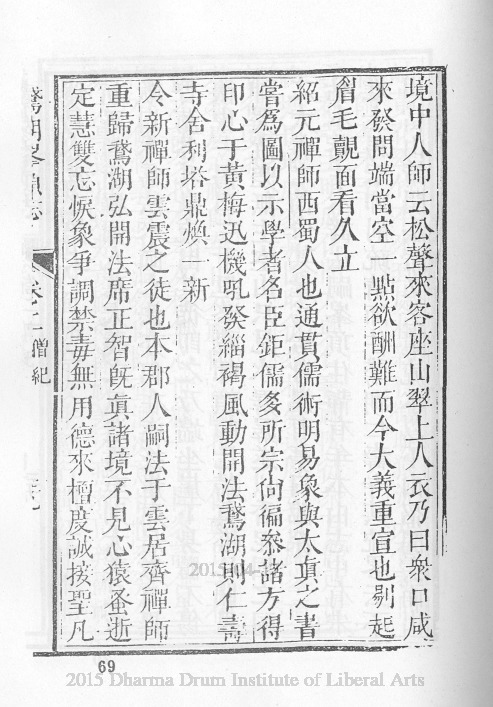 境中人師云松聲來客座山翠上人衣乃曰衆口咸
來發問端當空一點欲酬難而今大義重宣也剔起
眉毛覿面看久立
紹元禪師西蜀人也通貫儒術明易象與太眞之書
嘗爲圖以示學者名臣鉅儒多所宗向徧叅諸方得
印心于黃梅迅機吼發緇褐風動開法鵞湖則仁壽
寺舍利塔鼎煥一新
令新禪師雲震之徒也本郡人嗣法于雲居齊禪師
重歸鵞湖弘開法席正智旣眞諸境不見心猿蚤逝
定慧雙忘悞象爭調禁毒無用德來檀慶誠接聖凡
鵞湖峯頂志
卷二僧紀
2015-04-
69
2015 Dharma Drum Institute of Liberal Arts